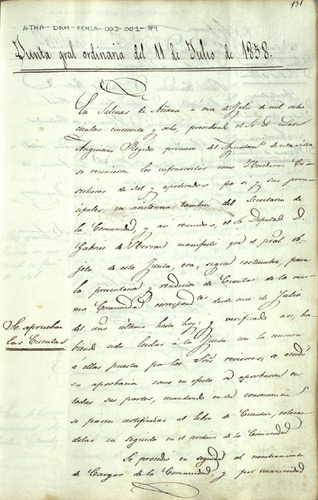 131
ATHA-DAH-FCHSA-003-001-89
Junta gral ordinaria del 11 de Julio de 1858.
En Salinas de Añana a once de Julio de mil ocho
cientos cincuenta y ocho, presidiendo el Sr. D.
Anguiano Regidor primero del Ayuntamto de esta villa
se reunieron los infrascritos como Herederos Co-
secheros de Sal y apoderados por si y sus prin-
cipales, con asistencia tambien del Secretario de
la Comunidad, y asi reunidos, el Sr. Diputado D.
Gabriel de manifestó que el pral ob-
jeto de esta Junta, era, segun costumbre, para
la presentacion y rendicion de Cuentas de la mis-
ma Comunidad correspondtes desde once de Julio
del año ultimo hasta hoy, y verificado asi, ha-
biendo sido leidas á la Junta con la censura
á ellas puesta por los Sres revisores, se acordó
su aprobacion como en efecto se aprobaron en
todas sus partes, mandando en su consecuencia
se pasen certificadas al libro de Cuentas, colocan-
dolas en seguida en el archivo de la Comunidad.
Se aprueban
las Cuentas
Se procedio en seguida al nombramiento
de Cargos de la Comunidad y por unanimidad